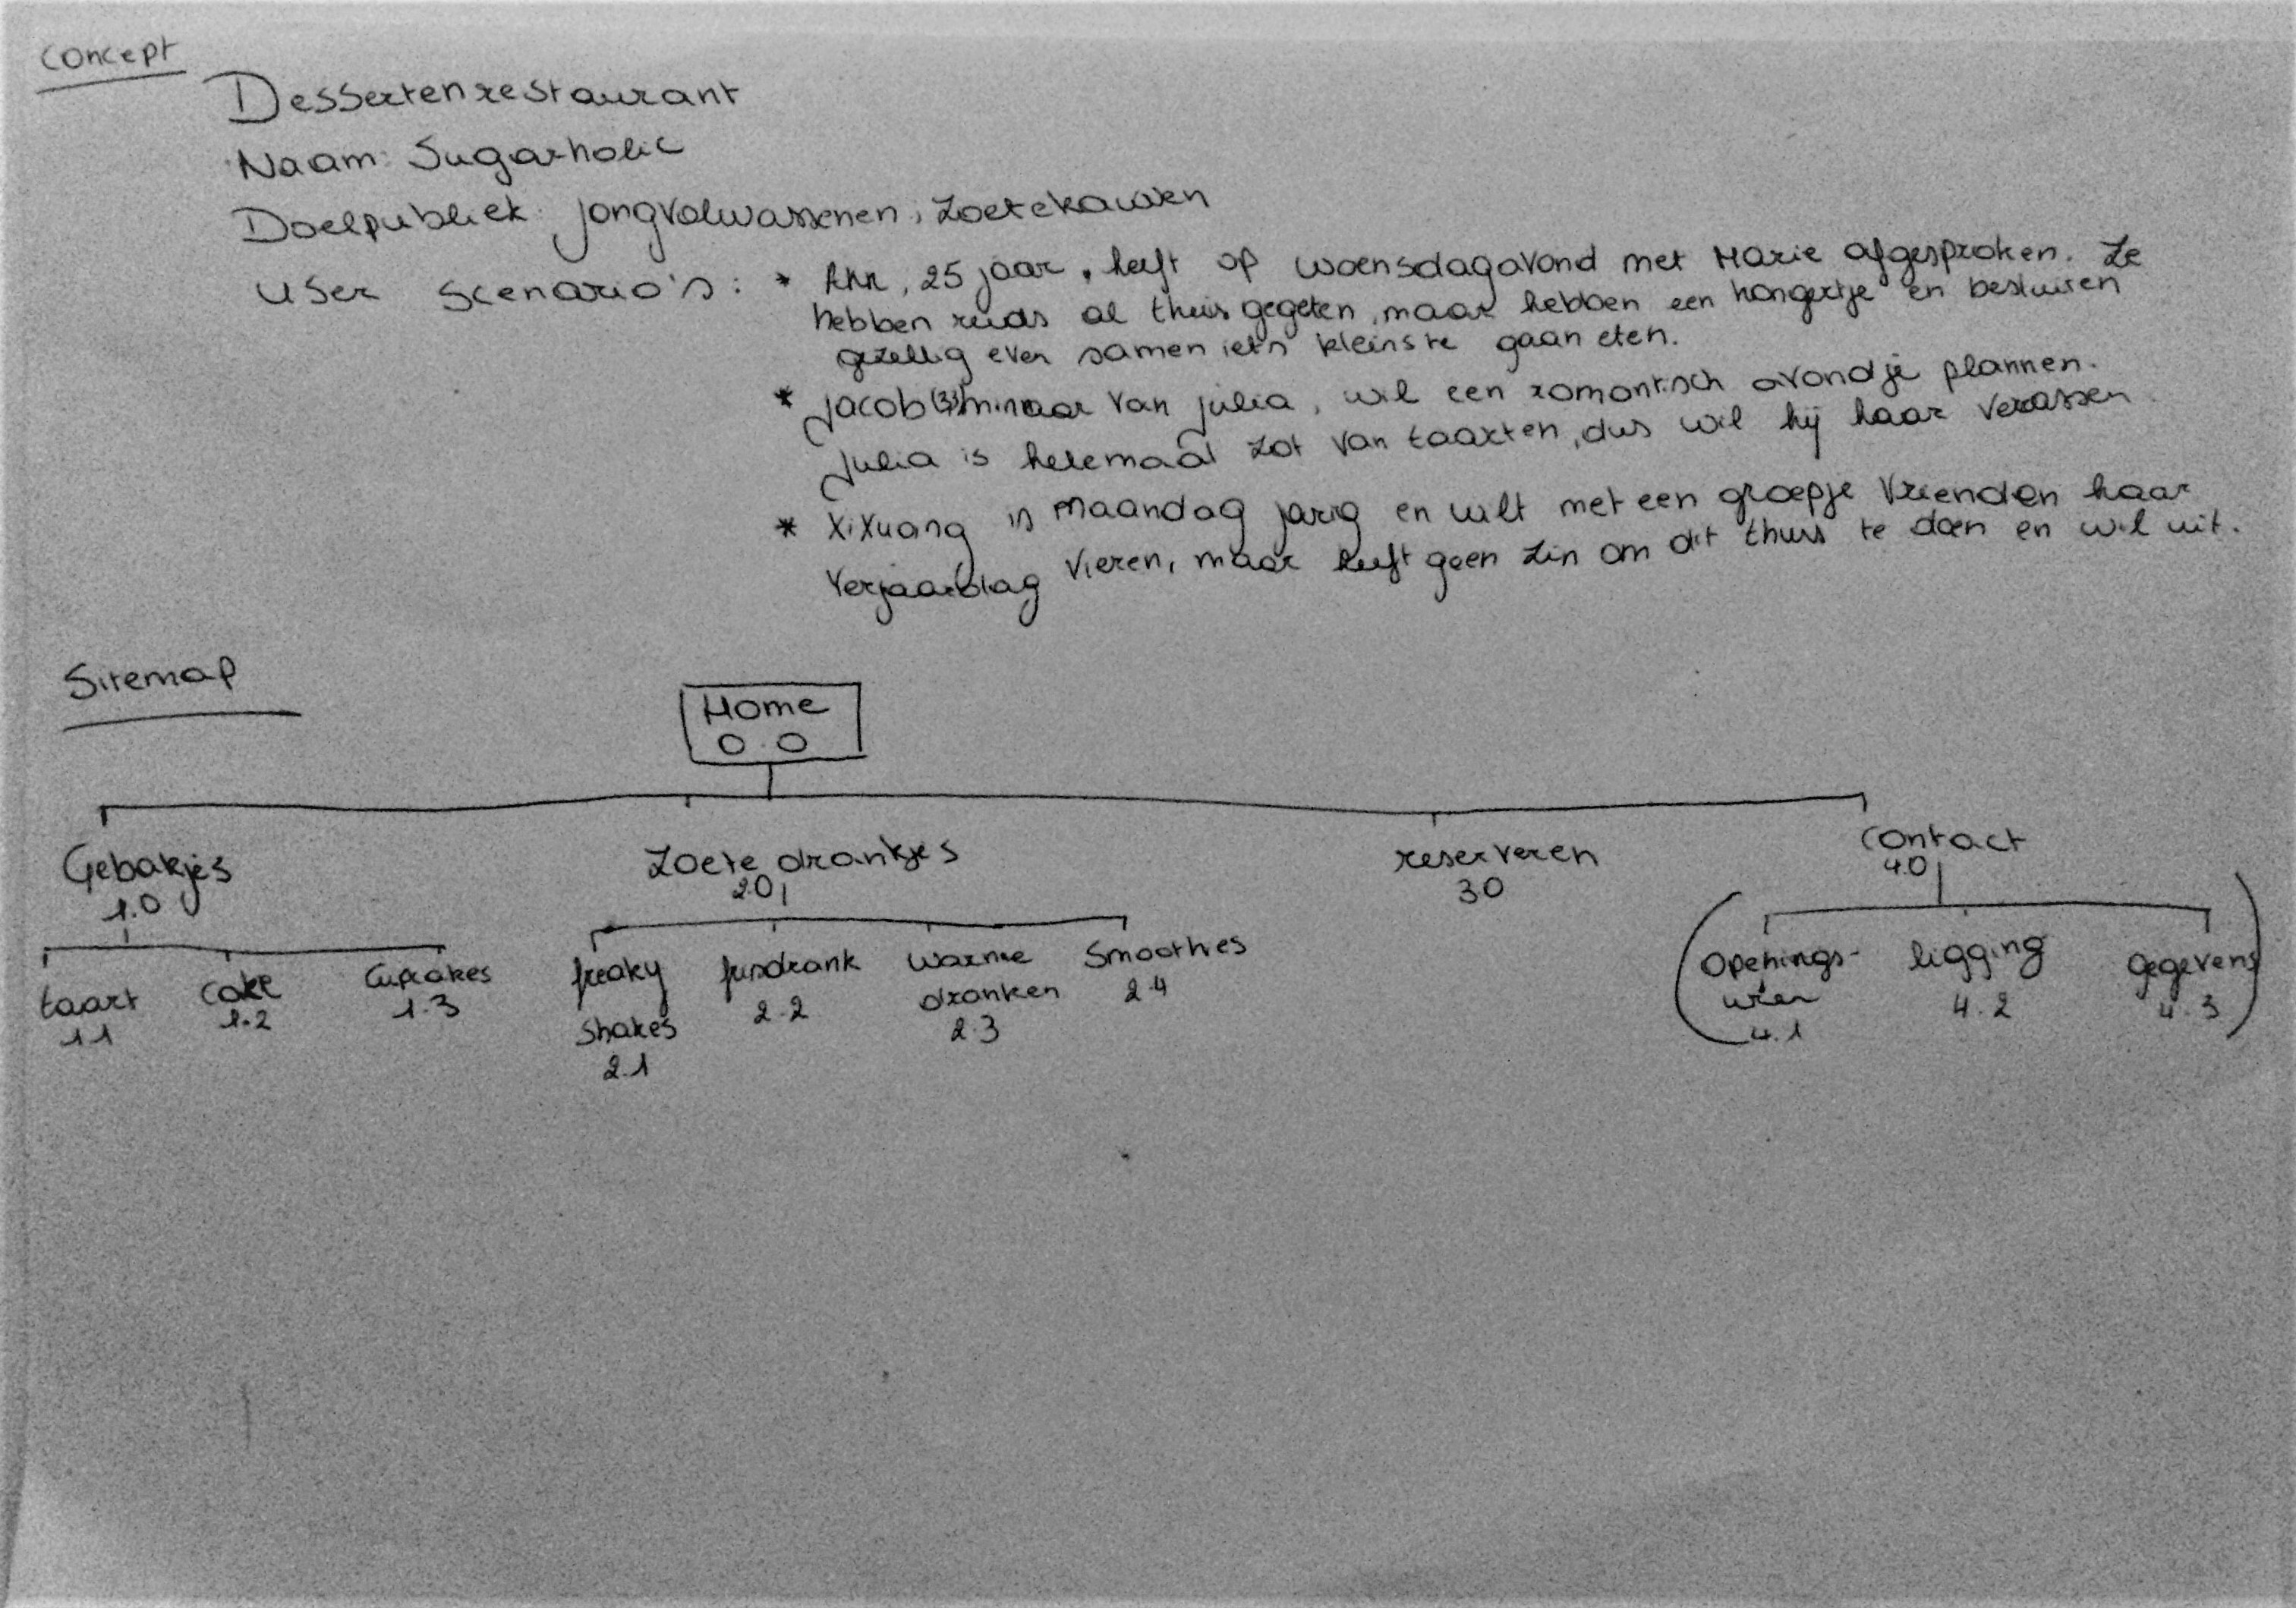 concept
Dessertenrestaurant
Naam: Sugarholic
Doelpubliek: jongvolwassenen, zoetekauwen
User scenario's: * Ann, 25 jaar, heeft op woensdagavond met Marie afgesproken. Ze
hebben reeds al thuis gegeten, maar hebben een hongertje en besluiten
gezellig even samen iets kleins te gaan eten.
* Jacob minnaar van julia, wil een romantisch avondje plannen.
Julia is helemaal zot van taarten, dus wil hij haar verassen.
* XiXuang is maandag jarig en wilt met een groepje vrienden haar
verjaardag vieren, maar heeft geen zin om dit thuis te doen en wil uit.
Sitemap
Home
0.0
Gebakjes
1.0
Zoete drankjes
2.0
reserveren
3.0
contact
4.0
taart
1.1
cake
1.2
Cupcakes
1.3
freaky
shakes
2.1
frisdrank
2.2
warme
dranken
2.3
Smoothies
2.4
(Openings-
uren
4.1
ligging
4.2
gegevens
4.3)